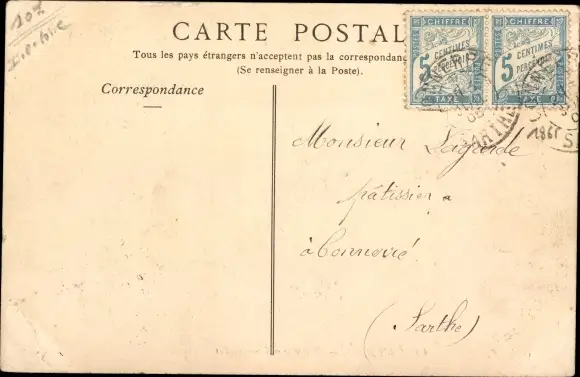 10%
CARTE POSTAL
Tous les pays étrangers n'acceptent pas la correspondance
(Se renseigner à la Poste).
Correspondance
CHIFFRE
5
CENTIMES
À PERCEVOIR
TAXE
CHIFFRE
5
CENTIMES
À PERCEVOIR
TAXE
SARTHE
1861
Monsieur Lagarde
pâtissier a
à Connerré
(Sarthe)